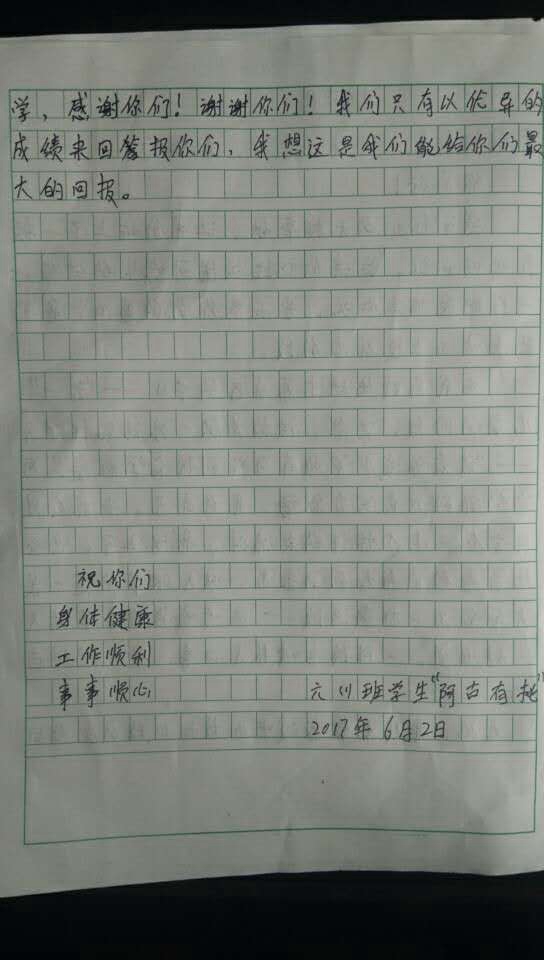 学，感谢你们！谢谢你们！我们只有以优异的
成绩来回答报你们，我想这是我们能给你们最
大的回报。
祝你们
身体健康
工作顺利
事事顺心
六(1)班学生“阿古有扎”
2017年6月2日